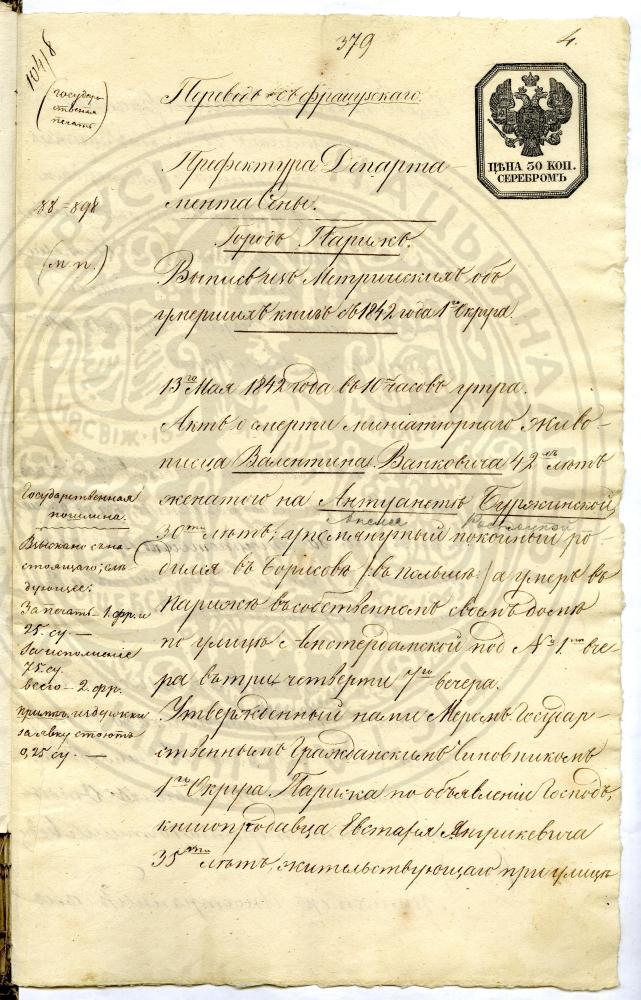 379
4.
1041/8
(Государ-
ственная
печать)
Переводъ съ французскаго.
ЦѢНА 30 КОП.
СЕРЕБРОМЪ
Префектура Департа
мента Сены.
88=898
Городъ Парижъ.
(м. п.)
Выпись изъ Метрическихъ объ
умершихъ книгъ съ 1842 года 1го Округа.
13го Мая 1842 года въ 10 часовъ утра.
Актъ о смерти миніатюрнаго живо-
писца Валентина Ваньковича 42хъ лѣтъ
женатаго на Антуанетѣ Буржинской,
30ти лѣтъ; покойный ро-
дился въ Борисовѣ /:въ польшѣ:/ а умеръ въ
Парижѣ въ собственномъ своемъ домѣ
по улицѣ Амстердамской под № 1. вче-
ра въ три четверти 7го вечера.
Утвержденный нами Меромъ Государ-
ственнымъ Гражданскимъ Чиновникомъ
1го Округа Парижа по объявленію Господъ,
книгопродавца Евстафія Янушкевича
35ти лѣтъ, жительствующаго при улицѣ
Государственная
пошлина.
Взыскано съ на-
стоящаго; слѣ-
дующее:
За печать 1. фр. и
25. су. —
За исполненіе
75. су.
Всего — 2. фр.
издержки
за явку стоютъ
0,25 су. —